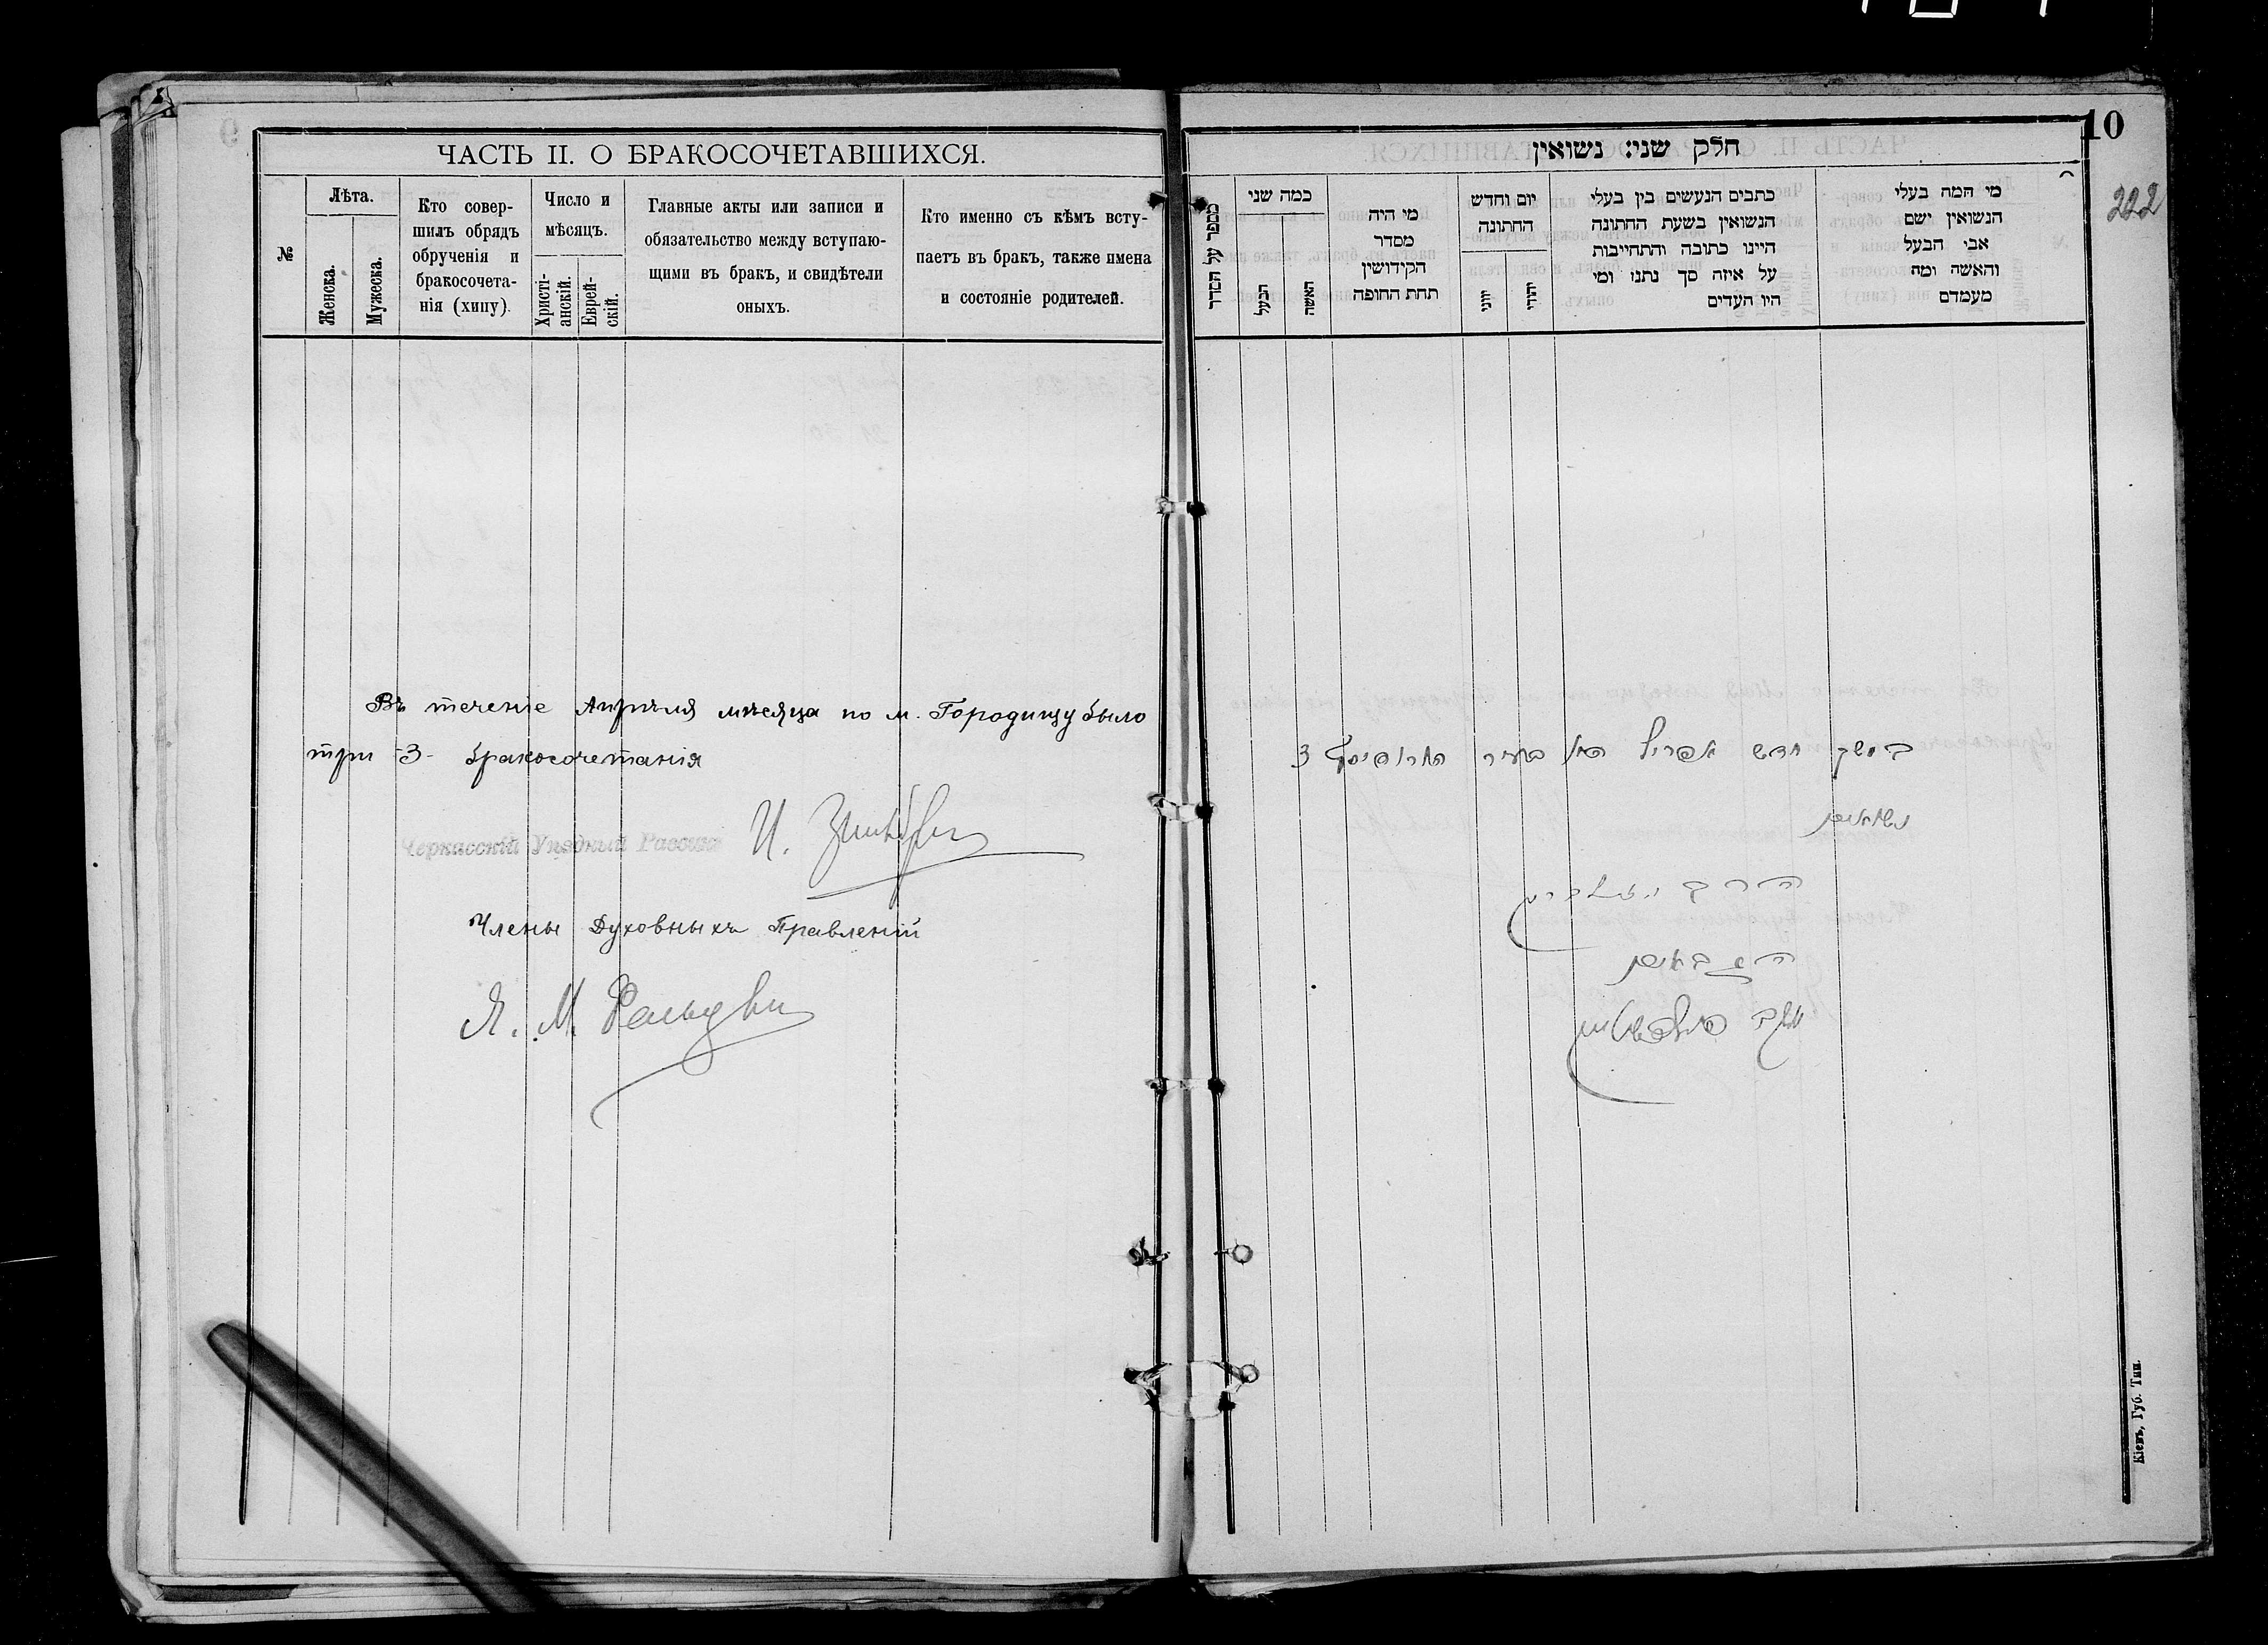 ЧАСТЬ II. О БРАКОСОЧЕТАВШИХСЯ.
№
Лѣта.
Женска.
Мужеска.
Кто совер-
шилъ обрядъ
обрученія и
бракосочета-
нія (хипу).
Число и
мѣсяцъ.
Христі-
анскій.
Еврей-
скій.
Главные акты или записи и
обязательство между вступаю-
щими въ бракъ, и свидѣтели
оныхъ.
Кто именно съ кѣмъ всту-
паетъ въ бракъ, также имена
и состояніе родителей.
Въ теченіе Апрѣля мѣсяца по м. Городищу было
три -3- бракосочетанія
Черкасскій Уѣздный Раввинъ И.
Члены Духовныхъ Правленій
Я. М.
10
222
חלק שני: נשואין
מי המה בעלי
הנשואין ושם
אבי הבעל
והאשה ומה
מעמדם
כתבים הנעשים בין בעלי
הנשואין בשעת החתונה
היינו כתובה והתחייבות
על איזה סך נתנו ומי
היו העדים
יום וחדש
החתונה
יהודי
יווני
מי היה
מסדר
הקידושין
תחת החופה
כמה שני
האשה
הבעל
מספר על הסדר
במשך חדש אפריל היו בעיר 3
נשואים
הרב
הגבאים
יעקב
Кіевъ, Губ. Тип.